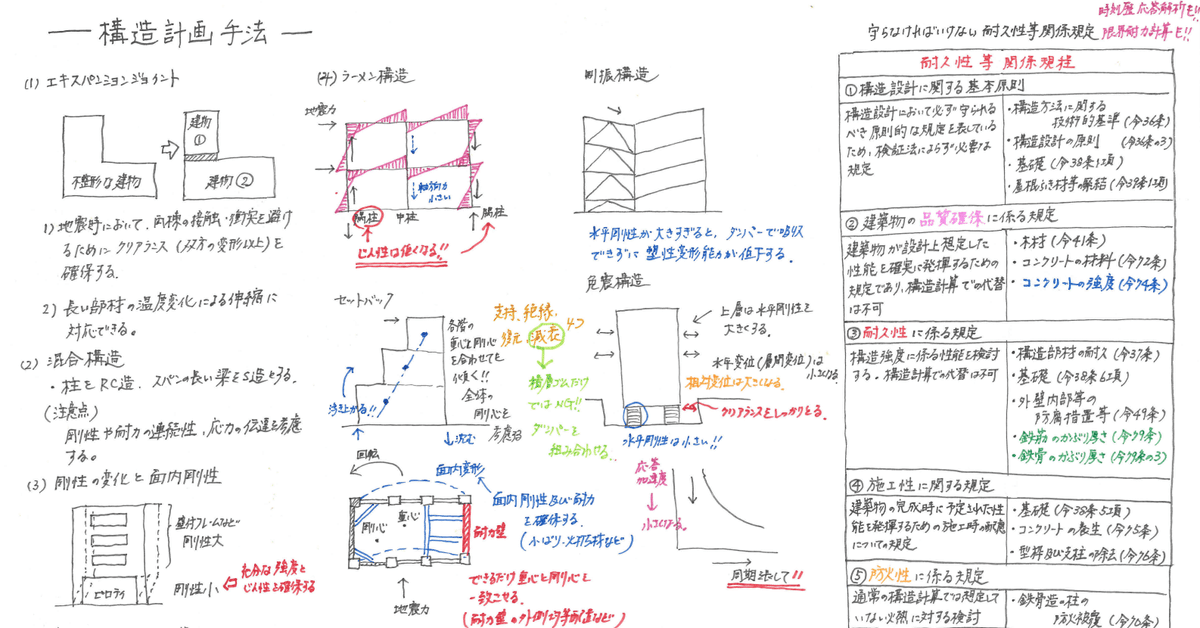 構造計画手法
(1) エキスパンションジョイント
不整形な建物
建物
①
建物②
1) 地震時において、両棟の接触・衝突を避け
るためにクリアランス (双方の変形以上)を
確保する。
2) 長い部材の温度変化による伸縮に
対応できる。
(2) 混合構造
・柱をRC造、スパンの長い梁をS造とする。
(注意点)
剛性や耐力の連続性、応力の伝達を考慮
する。
(3) 剛性の変化と面内剛性
壁付フレームなど
剛性大
ピロティ
剛性小
充分な強度と
じん性を確保する
ラーメン構造
地震力
軸方向力
小さい
隅柱
中柱
隅柱
じん性は低くなる!!
セットバック
各階の
重心と剛心
を合わせても
傾く!!
全体の
剛心を
考慮する
浮き上がる!!
沈む
回転
面内変形
面内剛性及び耐力
を確保する。
(小ばり・火打ち材など)
剛心
重心
耐力壁
地震力
できるだけ重心と剛心を
一致させる。
(耐力壁の外側均等配置など)
剛強構造
水平剛性が大きすぎると、ダンパーで吸収
できずに塑性変形能力が低下する。
免震構造
支持、絶縁、
復元、減衰
4つ
積層ゴムだけ
ではNG!!
ダンパーを
組み合わせる。
上層は水平剛性を
大きくする。
水平変位(層間変位)は
小さくなる
相対変位は大きくなる。
クリアランスをしっかりとる。
水平剛性は小さい!!
応答
加速度
小さくなる。
周期法して!!
時刻歴応答解析も!!
守らなければいけない耐久性等関係規定
限界耐力計算も!!
耐久性等関係規程
①構造設計に関する基本原則
構造設計において必ず守られる
べき原則的な規定を表している
ため、検証法によらず必要な
規定
・構造方法に関する
技術的基準 (令36条)
・構造設計の原則 (令36条の3)
・基礎 (令38条1項)
・屋根ふき材等の緊結 (令39条1項)
②建築物の品質確保に係る規定
建築物が設計上想定した
性能を確実に発揮するための
規定であり、構造計算での代替
は不可
・木材 (令41条)
・コンクリートの材料 (令72条)
・コンクリートの強度 (令74条)
③耐久性に係る規定
構造強度に係る性能を検討
する。構造計算での代替は不可
・構造部材の耐久 (令37条)
・基礎 (令38条6項)
・外壁内部等の
防腐措置等 (令49条)
・鉄筋のかぶり厚さ (令79条)
・鉄骨のかぶり厚さ (令79条の3)
④施工性に関する規定
建築物の完成時に予定された性
能を発揮するための施工時の配慮
についての規定
・基礎 (令38条5項)
・コンクリートの養生 (令75条)
・型枠及び支柱の除去 (令76条)
⑤防火性に係る規定
通常の構造計算では想定して
いない火熱に対する検討
・鉄骨造の柱の
防火被覆 (令70条)